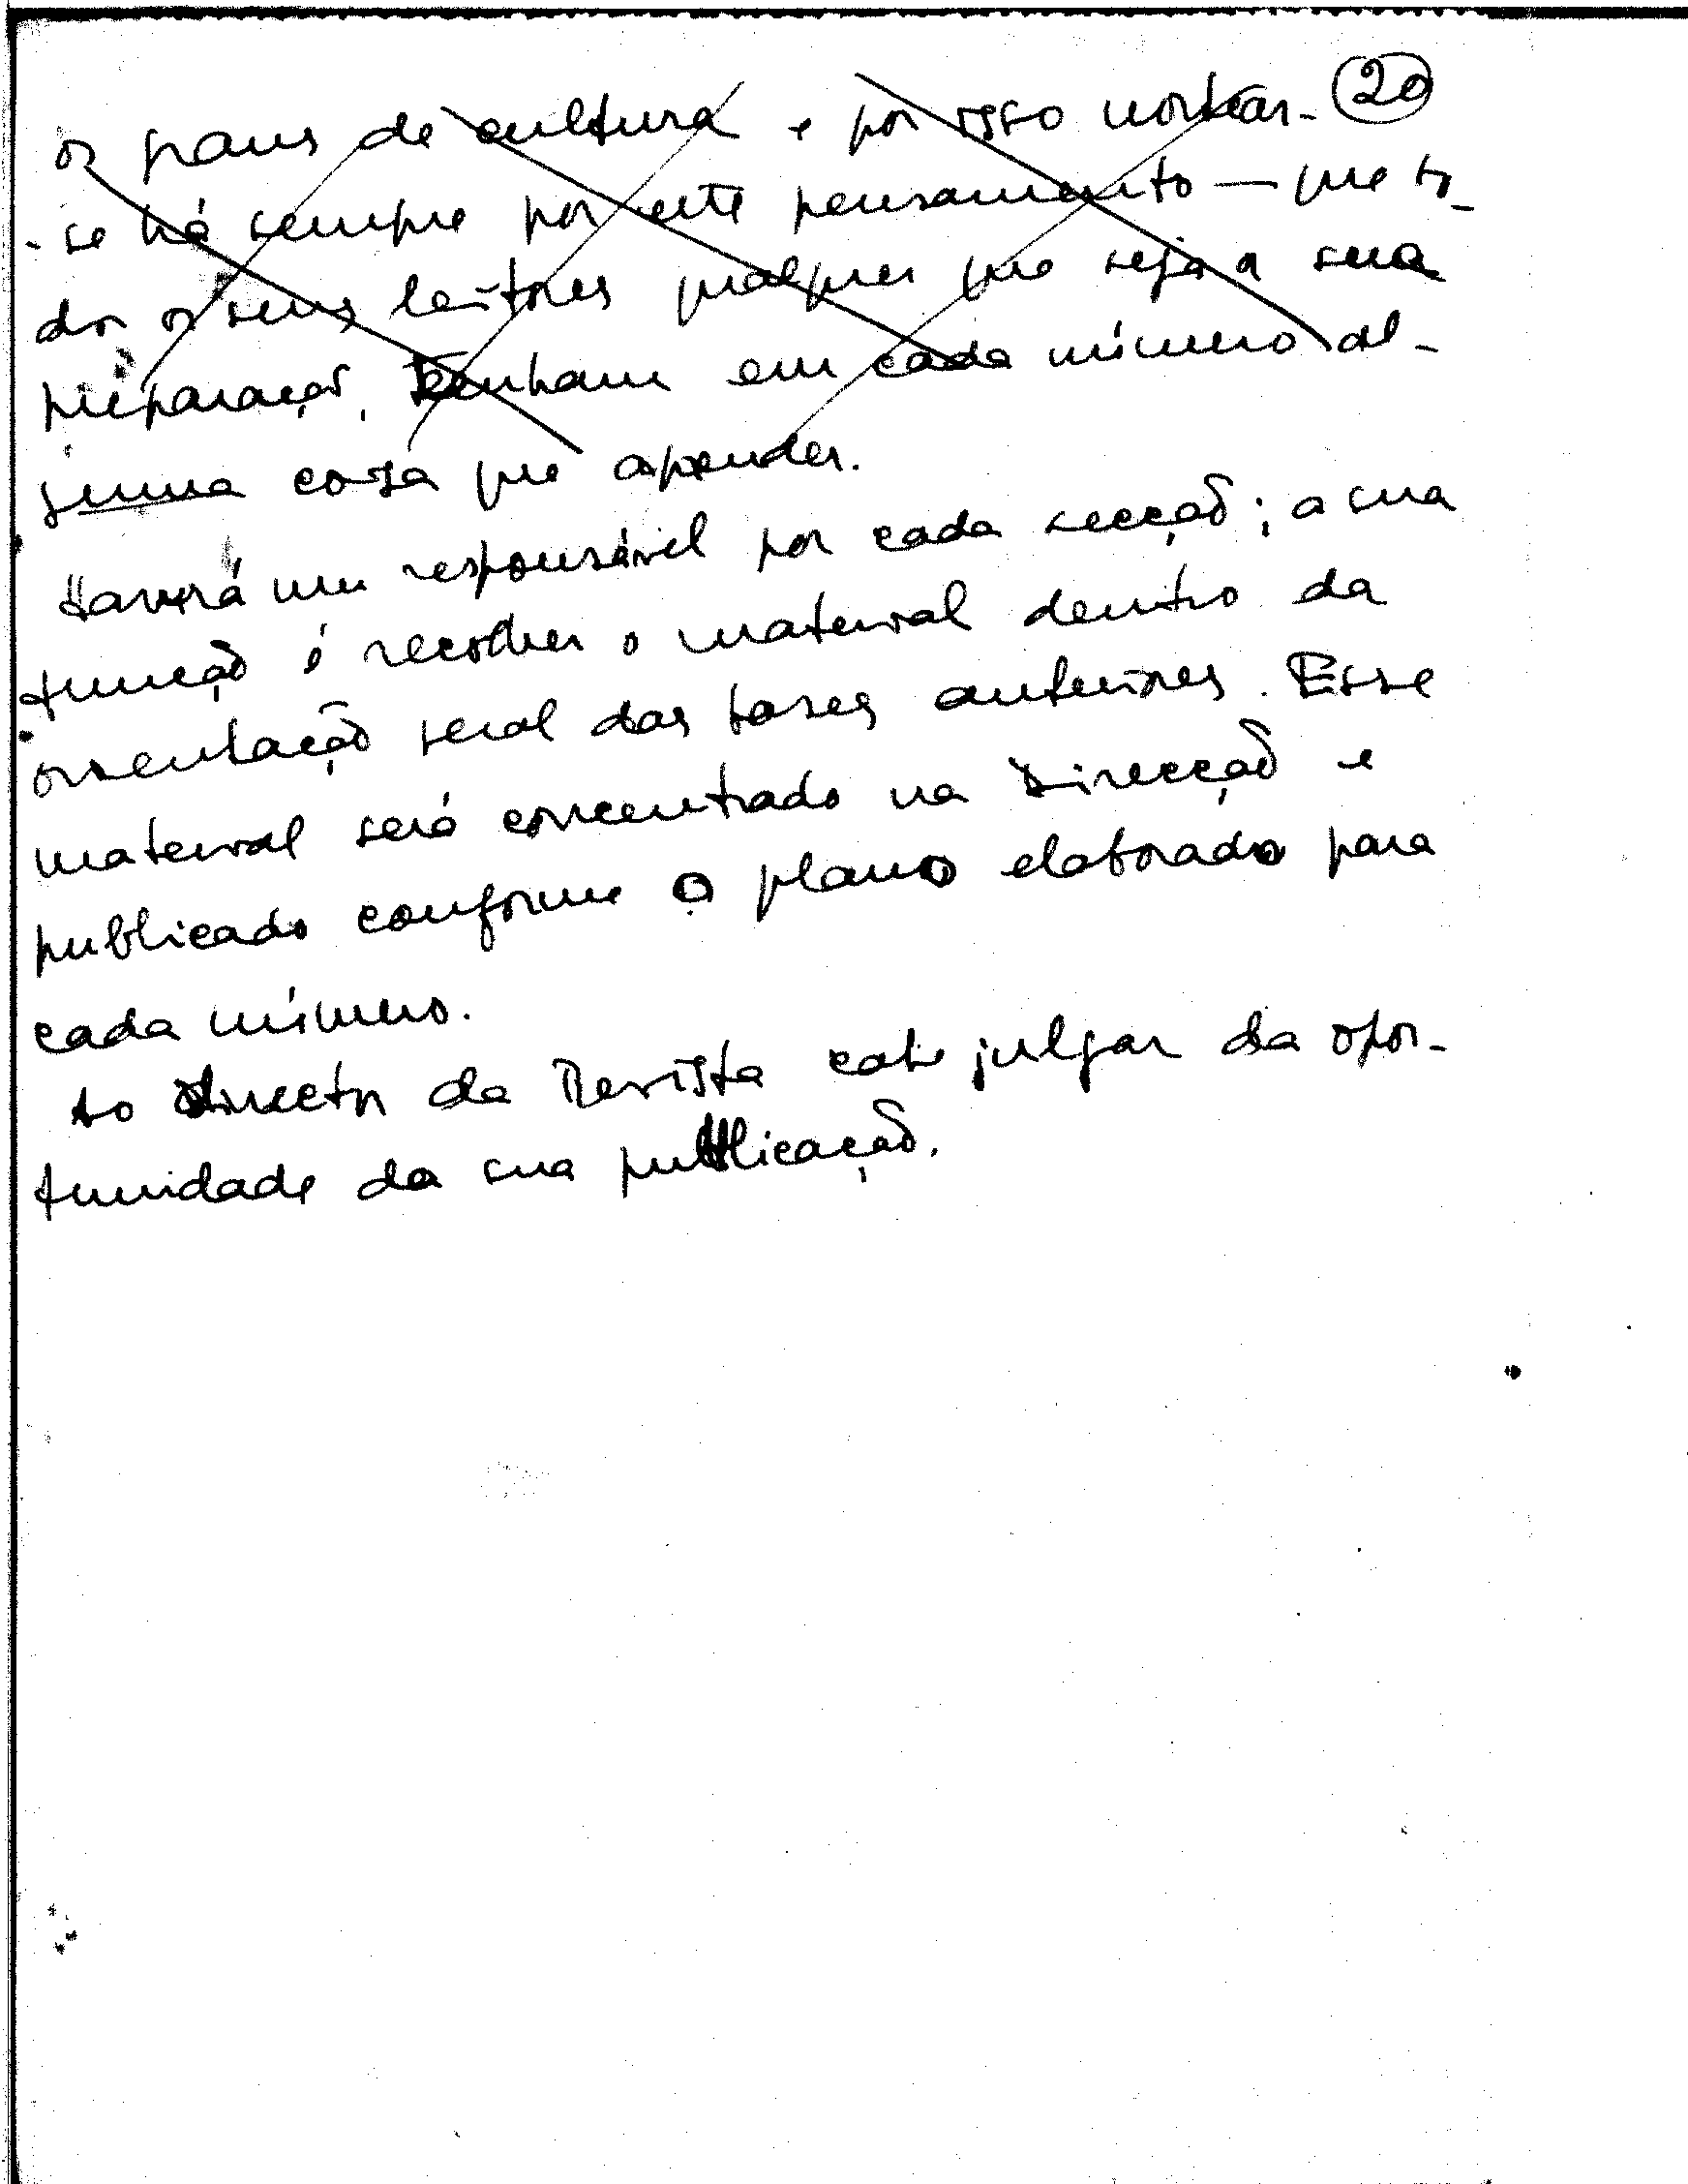 os graus de cultura e por isso nortear- 20
-se há sempre por este pensamento — que to-
dos os seus leitores qualquer que seja a sua
preparação, tenham em cada número al-
guma coisa que aprender.
Haverá um responsável por cada secção; a sua
função é recolher o material dentro da
orientação geral das bases anteriores. Esse
material será concentrado na Direcção e
publicado conforme o plano elaborado para
cada número.
Ao Director da Revista cabe julgar da opor-
tunidade da sua publicação.